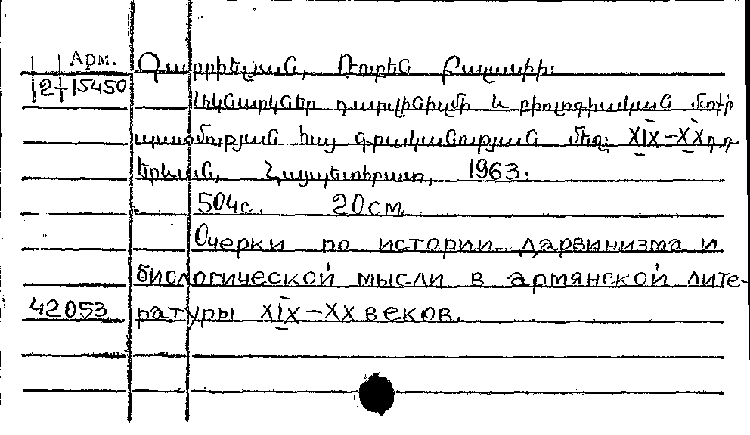 Арм.
Գաբրիելյան, Ռուբեն Բալասիի
12-15450
Ակնարկներ դարվինիզմի և բիոլոգիական մտքի
պատմության հայ գրականության մեջ: XIX-XX դ.դ.
Երևան, Հայպետհրատ, 1963.
504с. 20см.
Очерки по истории дарвинизма и
биологической мысли в армянской лите-
42053 ратуры XIX-XX веков.